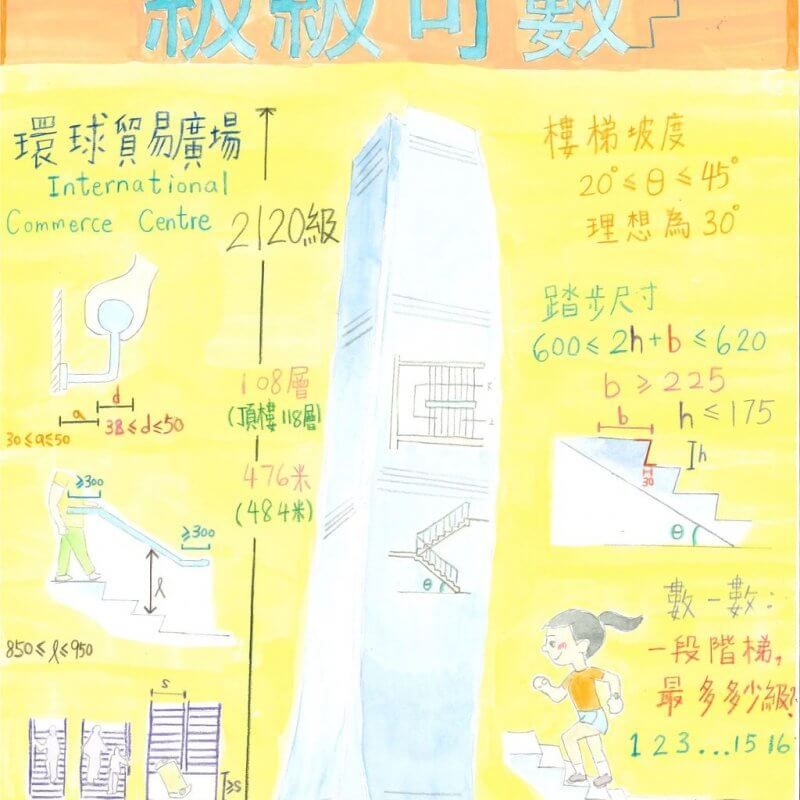 級級可數
環球貿易廣場
International
Commerce Centre
2120級
108層
(頂樓118層)
476米
(484米)
d
a
38≤d≤50
30≤a≤50
≥300
≥300
l
850≤l≤950
s
≥s
θ
樓梯坡度
20°≤θ≤45°
理想為30°
踏步尺寸
600≤2h+b≤620
b≥225
h≤175
b
h
30
θ
數一數:
一段階梯,
最多多少級?
1 2 3...15 16